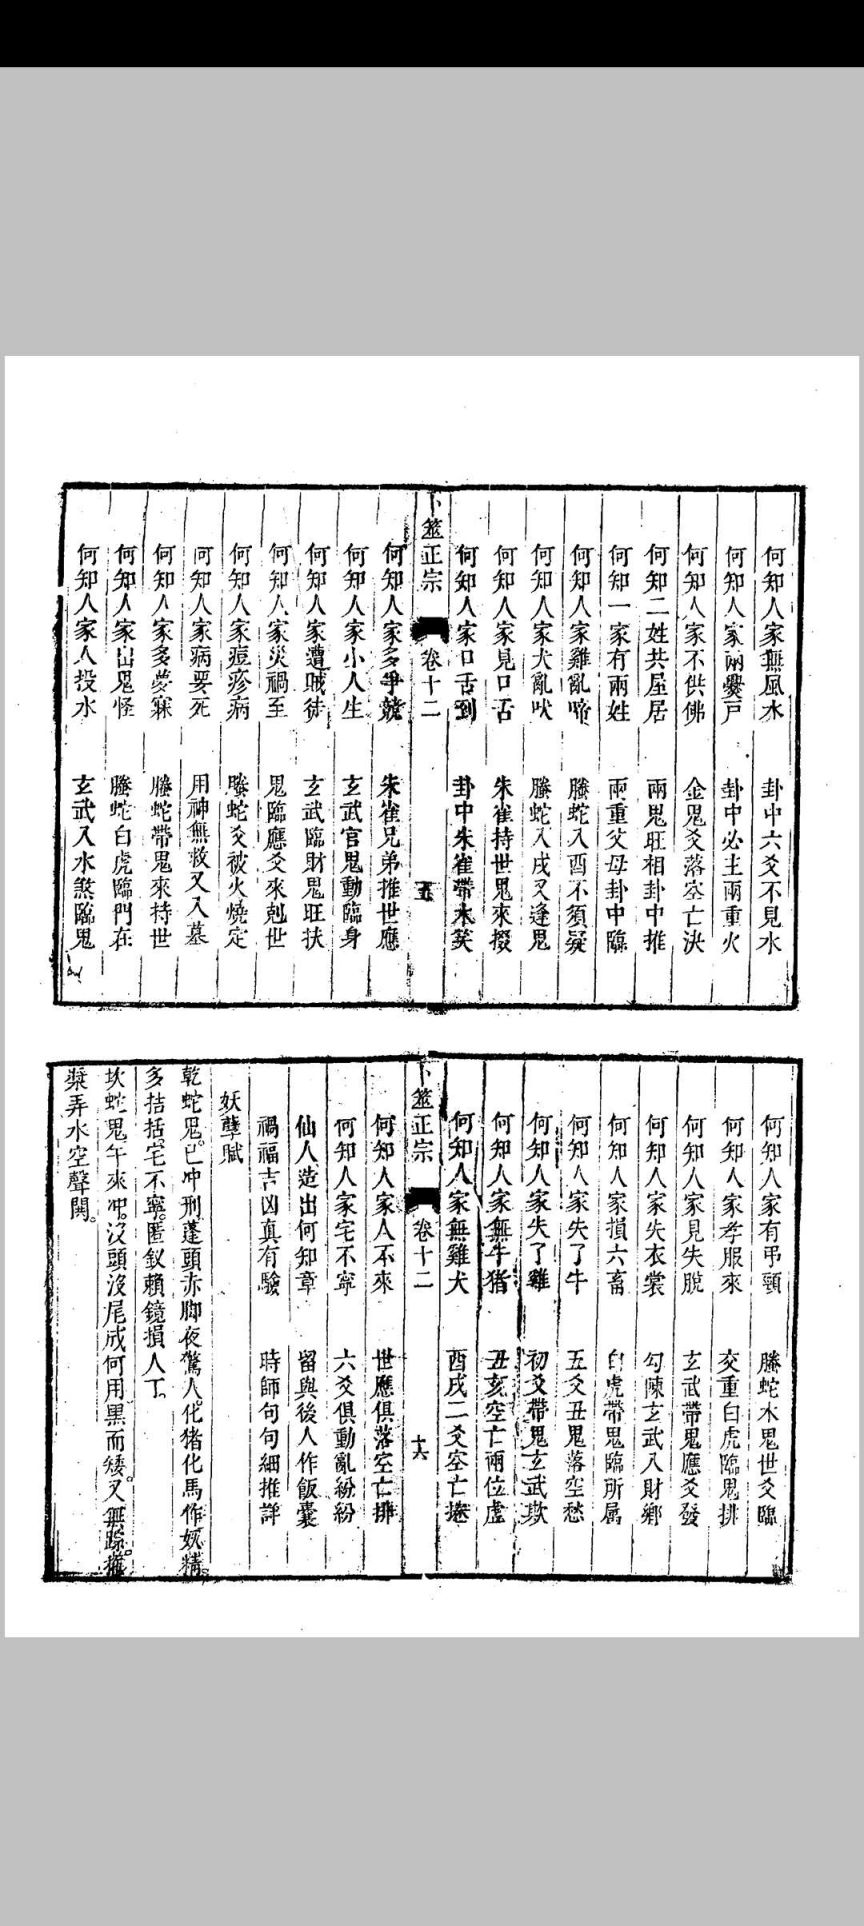 何知人家無風水　卦中六爻不見水
何知人家兩爨戶　卦中必主兩重火
何知人家不供佛　金鬼爻落空亡決
何知二姓共屋居　兩鬼旺相卦中推
何知一家有兩姓　兩重父母卦中臨
何知人家雞亂啼　螣蛇入酉不須疑
何知人家犬亂吠　螣蛇入戌又逢鬼
何知人家見口舌　朱雀持世鬼來掇
何知人家口舌到　卦中朱雀帶木笑
卜筮正宗　卷十二　五
何知人家多爭競　朱雀兄弟推世應
何知人家小人生　玄武官鬼動臨身
何知人家遭賊徒　玄武臨財鬼旺扶
何知人家災禍至　鬼臨應爻來剋世
何知人家痘疹病　螣蛇爻被火燒定
何知人家病要死　用神無救又入墓
何知人家多夢寐　螣蛇帶鬼來持世
何知人家出鬼怪　螣蛇白虎臨門在
何知人家人投水　玄武入水煞臨鬼
何知人家有弔頸　螣蛇木鬼世爻臨
何知人家孝服來　交重白虎臨鬼排
何知人家見失脫　玄武帶鬼應爻發
何知人家失衣裳　勾陳玄武入財鄉
何知人家損六畜　白虎帶鬼臨所屬
何知人家失了牛　五爻丑鬼落空愁
何知人家失了雞　初爻帶鬼玄武欺
何知人家無牛猪　丑亥空亡兩位虛
何知人家無雞犬　酉戌二爻空亡捲
卜筮正宗　卷十二　十六
何知人家人不來　世應俱落空亡排
何知人家宅不寧　六爻俱動亂紛紛
仙人造出何知章　留與後人作飯囊
禍福吉凶真有驗　時師句句細推詳
妖孽賦
乾蛇鬼。巳冲刑。蓬頭赤脚夜驚人。化猪化馬作妖精。
多拮括。宅不寧。匿釵賴鏡損人丁。
坎蛇鬼。午來冲。沒頭沒尾成何用。黑而矮。又無踪。
槳弄水空聲鬨。